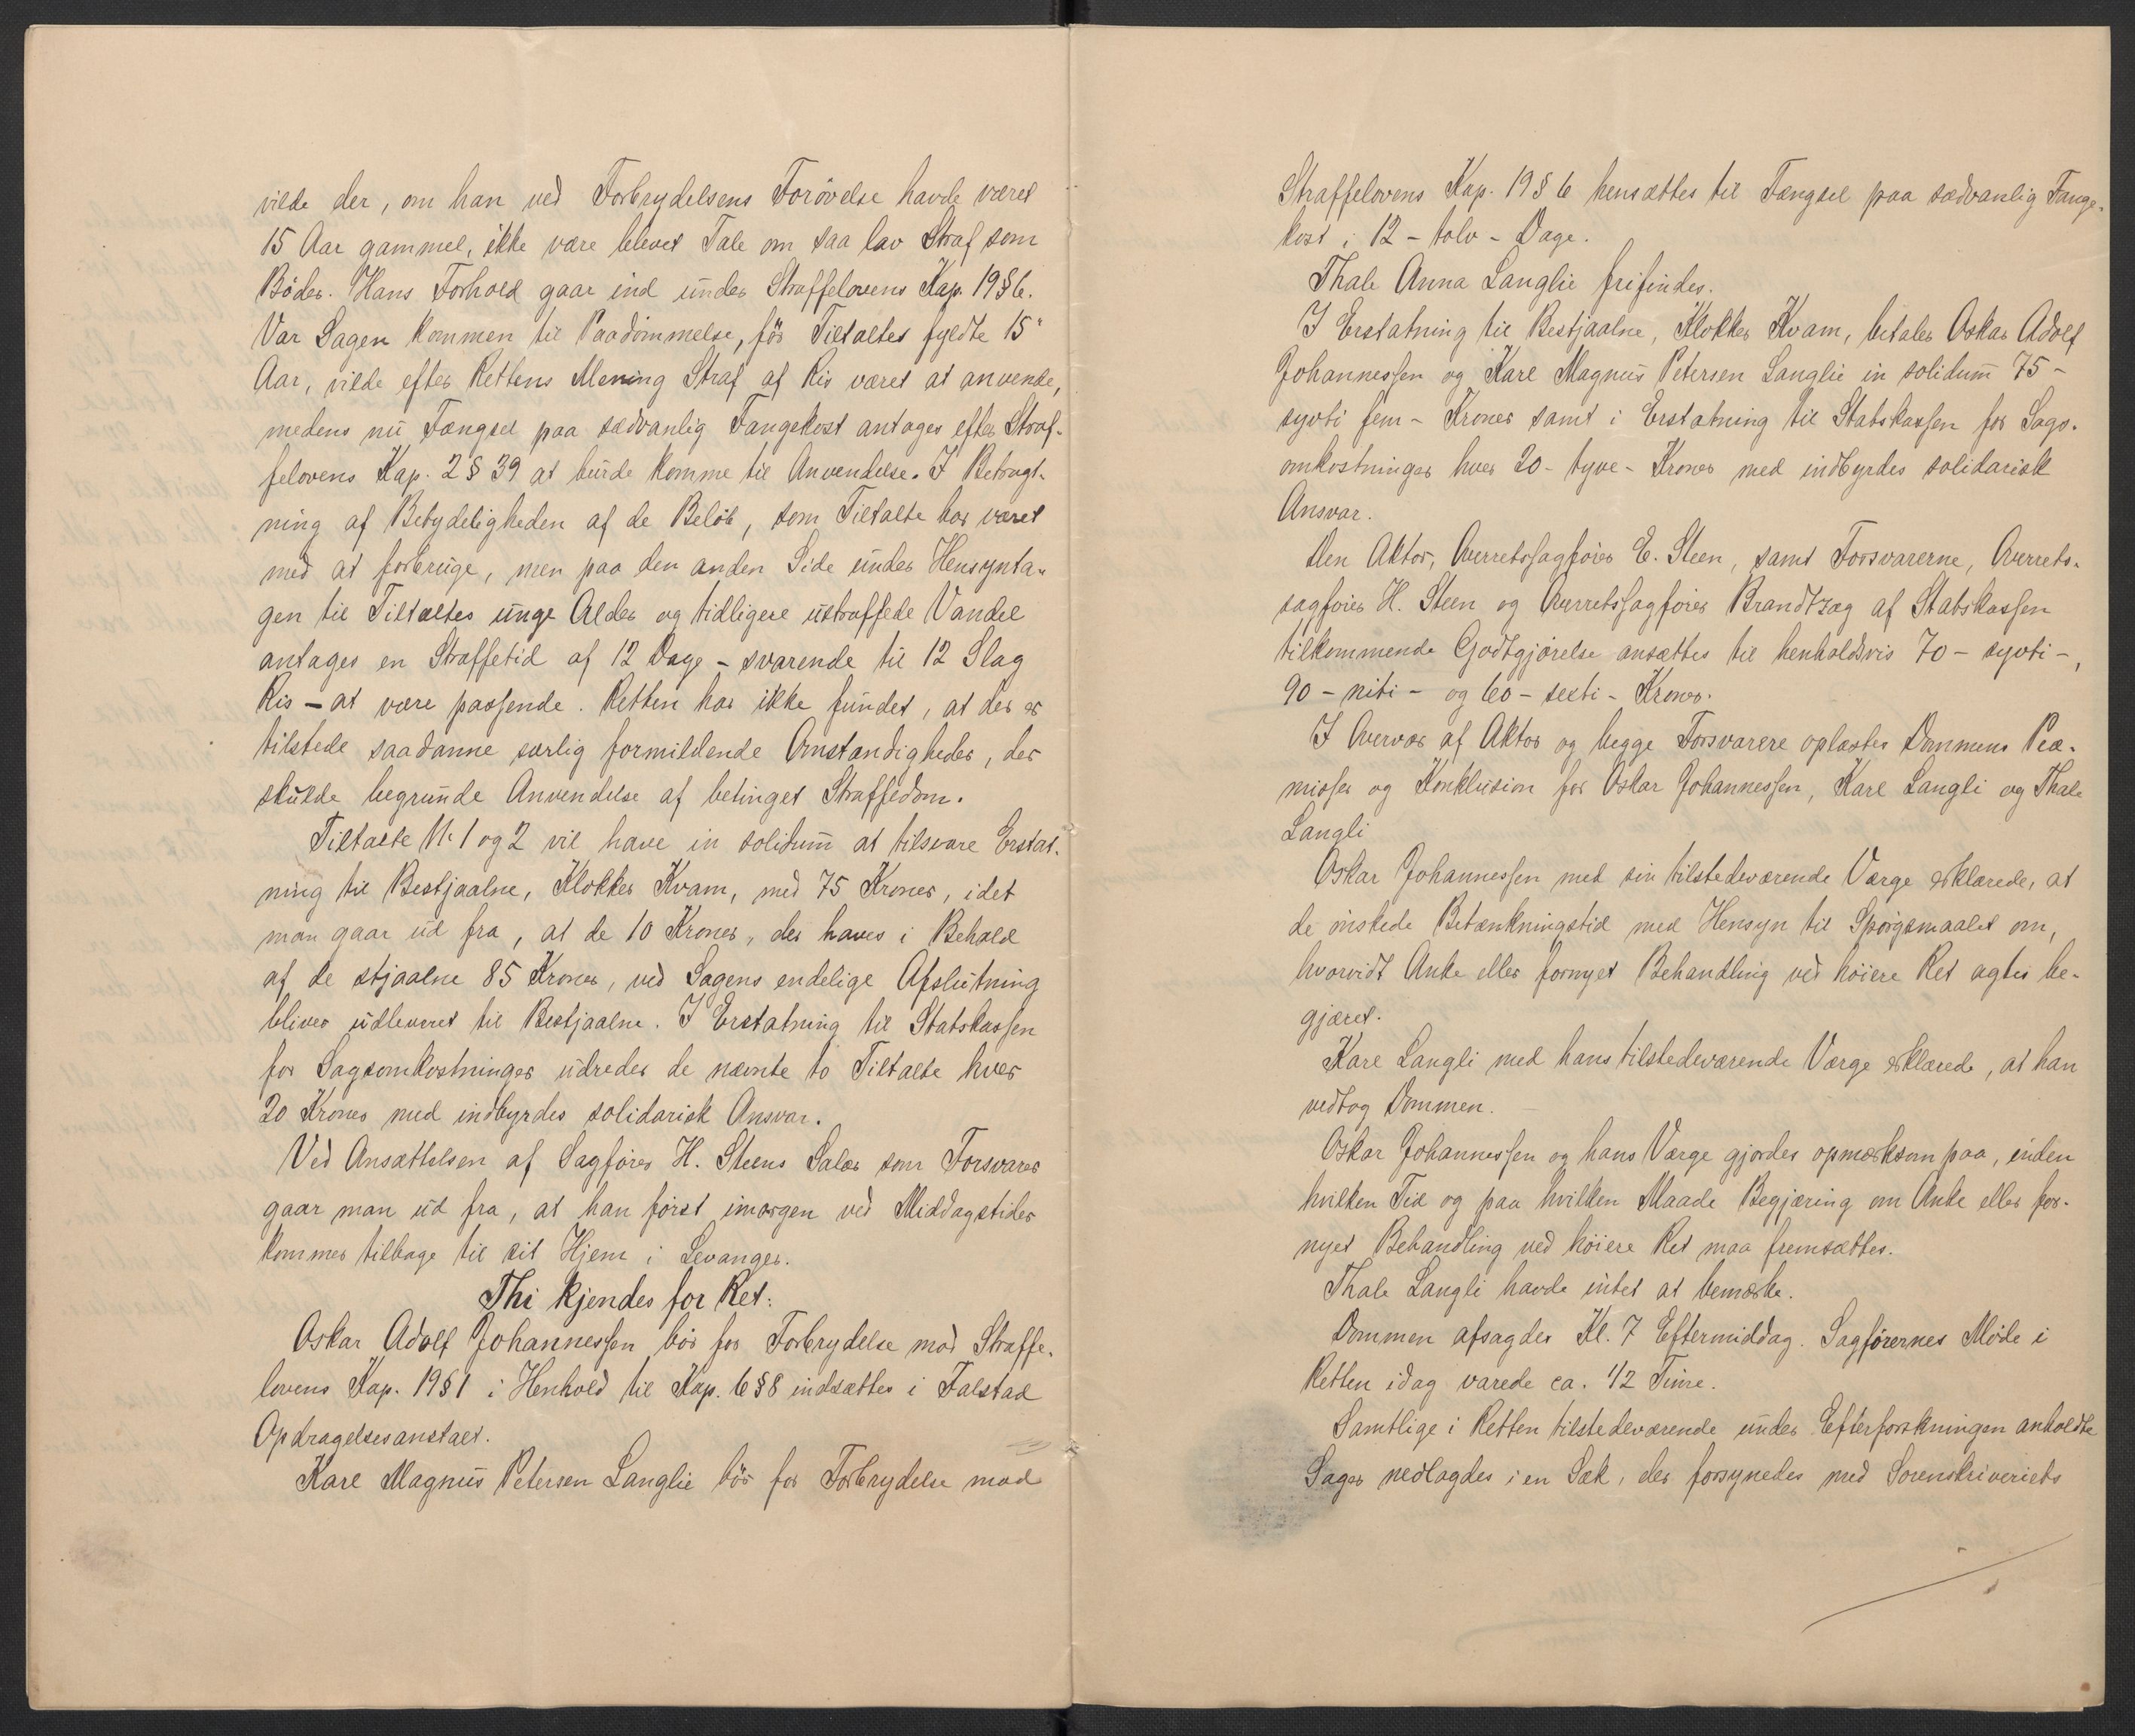 vilde der, om han ved Forbrydelsens Forøvelse havde været
15 Aar gammel, ikke være blevet Tale om saa lav Straf som
Bøder. Hans Forhold gaar ind under Straffelovens Kap. 19 § 6.
Var Sagen kommen til Paadømmelse, før Tiltaltes fyldte 15"
Aar, vilde efter Rettens Mening Straf af Ris været at anvende,
medens nu Fængsel paa sædvanlig Fangekost antages efter Straf-
felovens Kap. 2 § 39 at burde komme til Anvendelse. I Betragt-
ning af Betydeligheden af de Beløb, som Tiltalte har været
med at forbruge, men paa den anden Side under Hensynta-
gen til Tiltaltes unge Alder og tidligere ustraffede Vandel
antages en Straffetid af 12 Dage - svarende til 12 Slag
Ris - at være passende. Retten har ikke fundet, at der er
tilstede saadanne særlig formildende Omstændigheder, der
skulde begrunde Anvendelse af betinget Straffedom.
Tiltalte Nr 1 og 2 vil have in solidum at tilsvare Erstat-
ning til Bestjaalne, Klokker Kvam, med 75 Kroner, idet
man gaar ud fra, at de 10 Kroner, der haves i Behold
af de stjaalne 85 Kroner, ved Sagens endelige Afslutning
bliver udleveret til Bestjaalne. I Erstatning til Statskassen
for Sagsomkostninger udreder de nævnte to Tiltalte hver
20 Kroner med indbyrdes solidarisk Ansvar.
Ved Ansættelsen af Sagfører H. Steens Salær som Forsvarer
gaar man ud fra, at han først imorgen ved Middagstider
kommer tilbage til sit Hjem i Levanger.
Thi kjendes for Ret:
Oskar Adolf Johannessen bør for Forbrydelse mod Straffe-
lovens Kap. 19 § 1 i Henhold til Kap. 6 § 8 indsættes i Falstad
Opdragelsesanstalt.
Kare Magnus Petersen Langlie bør for Forbrydelse mod
Straffelovens Kap. 19 § 6 hensættes til Fængsel paa sædvanlig Fange-
kost i 12 - tolv - Dage.
Thale Anna Langlie frifindes.
I Erstatning til Bestjaalne, Klokker Kvam, betaler Oskar Adolf
Johannessen og Kare Magnus Petersen Langlie in solidum 75 -
sytti fem - Kroner samt i Erstatning til Statskassen for Sags-
omkostninger hver 20 - tyve - Kroner med indbyrdes solidarisk
Ansvar.
Den Aktor, Overretssagfører E. Steen, samt Forsvarerne, Overrets-
sagfører H. Steen og Overretssagfører Brandtzæg af Statskassen
tilkommende Godtgjørelse ansættes til henholdsvis 70 - sytti -,
90 - nitti - og 60 - sexti - Kroner.
I Overvær af Aktor og begge Forsvarere oplæstes Dommens Præ-
misser og Konklusion for Oskar Johannessen, Kare Langli og Thale
Langli
Oskar Johannessen med sin tilstedeværende Værge erklærede, at
de ønskede Betænkningstid med Hensyn til Spørgsmaalet om,
hvorvidt Anke eller fornyet Behandling ved høiere Ret agtes be-
gjæret.
Kare Langli med hans tilstedeværende Værge erklærede, at han
vedtog Dommen.
Oskar Johannessen og hans Værge gjordes opmærksom paa, inden
hvilken Tid og paa hvilken Maade Begjæring om Anke eller for-
nyet Behandling ved høiere Ret maa fremsættes.
Thale Langli havde intet at bemærke.
Dommen afsagdes Kl. 7 Eftermiddag. Sagførernes Møde i
Retten idag varede ca. 1/2 Time.
Samtlige i Retten tilstedeværende under Efterforskningen anholdte
Sager nedlagdes i en Sæk, der forsynedes med Sorenskriveriets